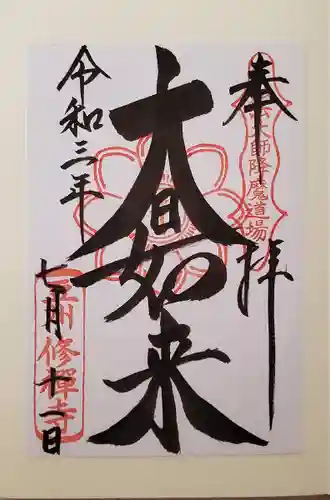 奉拝
大師降魔道場
大日如来
令和三年
七月十一日
修禪寺